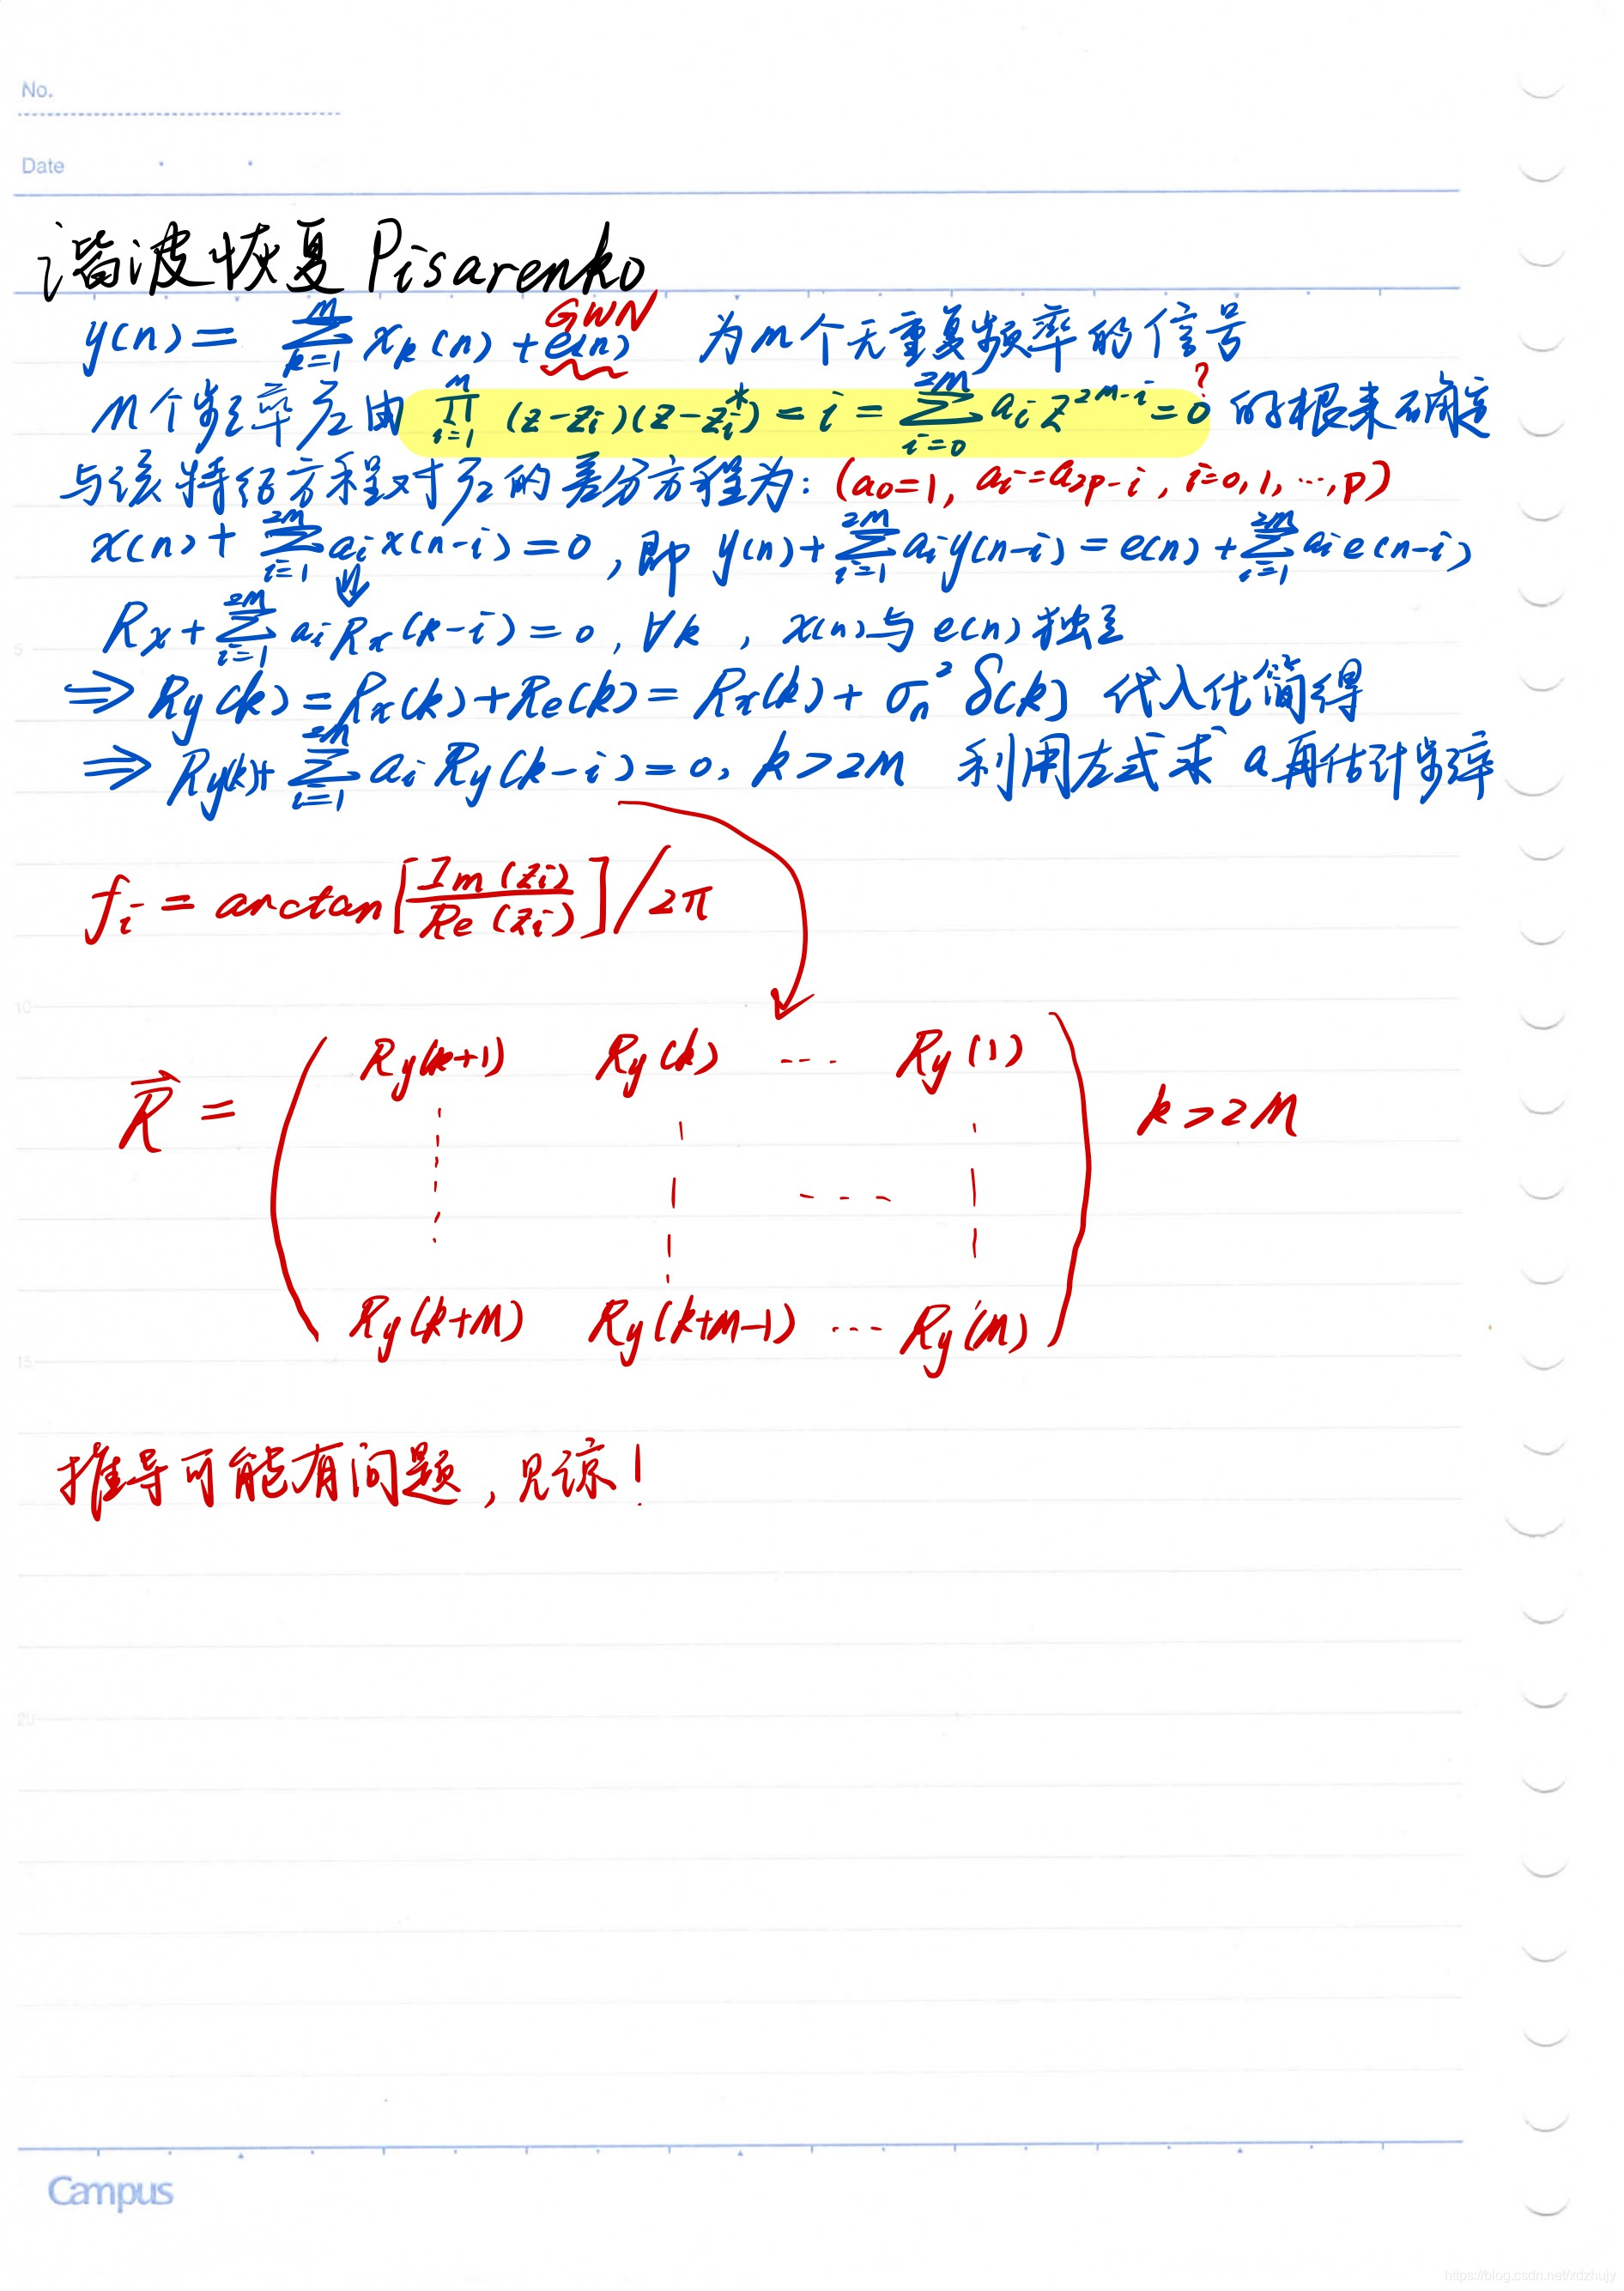 No.
Date
谐波恢复 Pisarenko
GWN
y(n) = ∑_{k=1}^{M} x_k(n) + e(n) 为M个无重复频率的信号
M个频率应由 ∏_{i=1}^{M} (z-z_i)(z-z_i^*) = i = ∑_{i=0}^{2M} a_i z^{2M-i} = 0 ? 的根来确定
与该特征方程对应的差分方程为: (a_0=1, a_i=a_{2p-i}, i=0,1,…,p)
x(n) + ∑_{i=1}^{2M} a_i x(n-i) = 0, 即 y(n) + ∑_{i=1}^{2M} a_i y(n-i) = e(n) + ∑_{i=1}^{2M} a_i e(n-i)
⇓
R_x + ∑_{i=1}^{2M} a_i R_x(k-i) = 0, ∀k, x(n)与e(n)独立
⇒ R_y(k) = R_x(k) + R_e(k) = R_x(k) + σ_n^2 δ(k) 代入化简得
⇒ R_y(k) + ∑_{i=1}^{2M} a_i R_y(k-i) = 0, k > 2M 利用左式求a再估计频率
f_i = arctan[Im(z_i)/Re(z_i)]/2π
5
10
R_y(k+1) R_y(k) … R_y(1)
R⃗ = k > 2M
R_y(k+M) R_y(k+M-1) … R_y(M)
15
推导可能有问题,见谅!
20
Campus
https://blog.csdn.net/xdzhujy